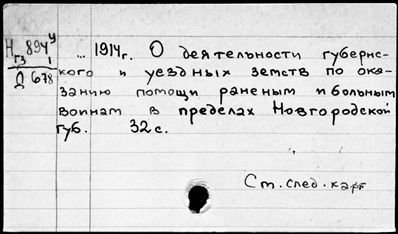 Н 894 У
гз 1
Д 678
... 1914г. О деятельности губернс-
кого и уездных земств по ока-
занию помощи раненым и больным
воинам в пределах Новгородской
губ. 32 с.
См. след. карт